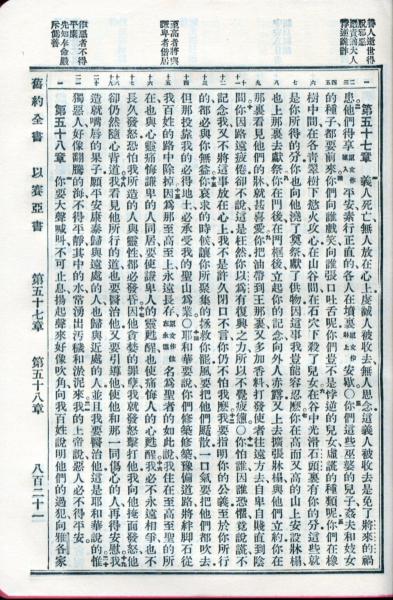 第五十七章 義人死亡無人放在心上虔誠人被收去無人思念這義人被收去是免了將來的禍
患他們得享平安素行正直的各人在墳裏安歇○你們這些巫婆的兒子姦夫和妓女
的種子都要前來你們向誰戲笑向誰張口吐舌呢你們豈不是悖逆的兒女虛謊的種類呢你們在橡
樹中間在各青翠樹下慾火攻心在山谷間在石穴下殺了兒女在谷中光滑石頭裏有你的分這些就
是你所得的分你也向他澆了奠祭獻了供物因這事我豈能容忍麼你在高而又高的山上安設牀榻
也上那裏去獻祭你在門後在門框後立起你的記念向外人赤露又上去擴張牀榻與他們立約你在
那裏看見他們的牀就甚喜愛你把油帶到王那裏又多加香料打發使者往遠方去自卑自賤直到陰
間你因路遠疲倦卻不說這是枉然你以為有復興之力所以不覺疲憊○你怕誰因誰恐懼竟說謊不
記念我又不將這事放在心上我不是許久閉口不言你仍不怕我麼我要指明你的公義至於你所行
的都必與你無益你哀求的時候讓你所聚集的拯救你罷風要把他們颳散一口氣要把他們都吹去
但那投靠我的必得地土必承受我的聖山為業○耶和華要說你們修築修築豫備道路將絆腳石從
我百姓的路中除掉因為那至高至上永遠長存名為聖者的如此說我住在至高至聖的所
在也與心靈痛悔謙卑的人同居要使謙卑人的靈甦醒也使痛悔人的心甦醒我必不永遠相爭也不
長久發怒恐怕我所造的人與靈性都必發昏因他貪婪的罪孽我就發怒擊打他我向他掩面發怒他
卻仍然隨心背道我看見他所行的道也要醫治他又要引導他使他和那一同傷心的人再得安慰我
造就嘴唇的果子願平安康泰歸與遠處的人也歸與近處的人並且我要醫治他這是耶和華說的惟
獨惡人好像翻騰的海不得平靜其中的水常湧出污穢和淤泥來我的上帝說惡人必不得平安
第五十八章 你要大聲喊叫不可止息揚起聲來好像吹角向我百姓說明他們的過犯向雅各家
舊約全書 以賽亞書 第五十七章 第五十八章 八百二十一